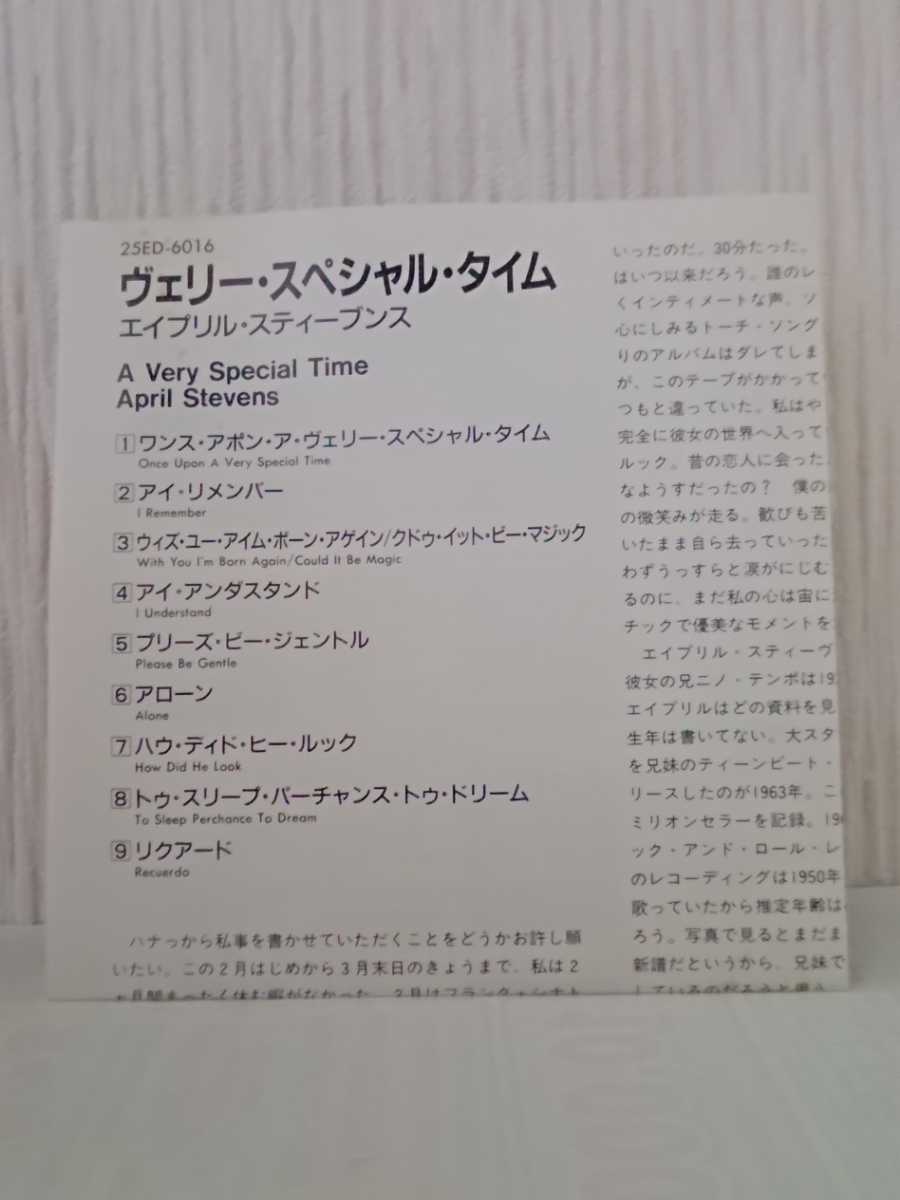 25ED-6016
ヴェリー・スペシャル・タイム
エイプリル・スティーブンス
A Very Special Time
April Stevens
1 ワンス・アポン・ア・ヴェリー・スペシャル・タイム
Once Upon A Very Special Time
2 アイ・リメンバー
I Remember
3 ウィズ・ユー・アイム・ボーン・アゲイン/クドゥ・イット・ビー・マジック
With You I'm Born Again/Could It Be Magic
4 アイ・アンダスタンド
I Understand
5 プリーズ・ビー・ジェントル
Please Be Gentle
6 アローン
Alone
7 ハウ・ディド・ヒー・ルック
How Did He Look
8 トゥ・スリープ・パーチャンス・トゥ・ドリーム
To Sleep Perchance To Dream
9 リクアード
Recuerdo
ハナっから私事を書かせていただくことをどうかお許し願
いたい。この2月はじめから3月末日のきょうまで、私は2
ヶ月間まったく休む暇がなかった。2月はフランク・シナト
いったのだ。30分たった。
はいつ以来だろう。誰のレ
くインティメートな声。ソ
心にしみるトーチ・ソング
りのアルバムはダレてしま
が、このテープがかかって
つもと違っていた。私はや
完全に彼女の世界へ入って
ルック。昔の恋人に会った
なようすだったの? 僕の
の微笑みが走る。歓びも苦
いたまま自ら去っていった
わずうっすらと涙がにじむ
るのに、まだ私の心は宙に
チックで優美なモメントを
エイプリル・スティーヴ
彼女の兄ニノ・テンポは19
エイプリルはどの資料を見
生年は書いてない。大スタ
を兄妹のティーンビート・
リースしたのが1963年。こ
ミリオンセラーを記録。19
ック・アンド・ロール・レ
のレコーディングは1950年
歌っていたから推定年齢は
ろう。写真で見るとまだま
新譜だというから、兄妹で
しているのだろうと思う